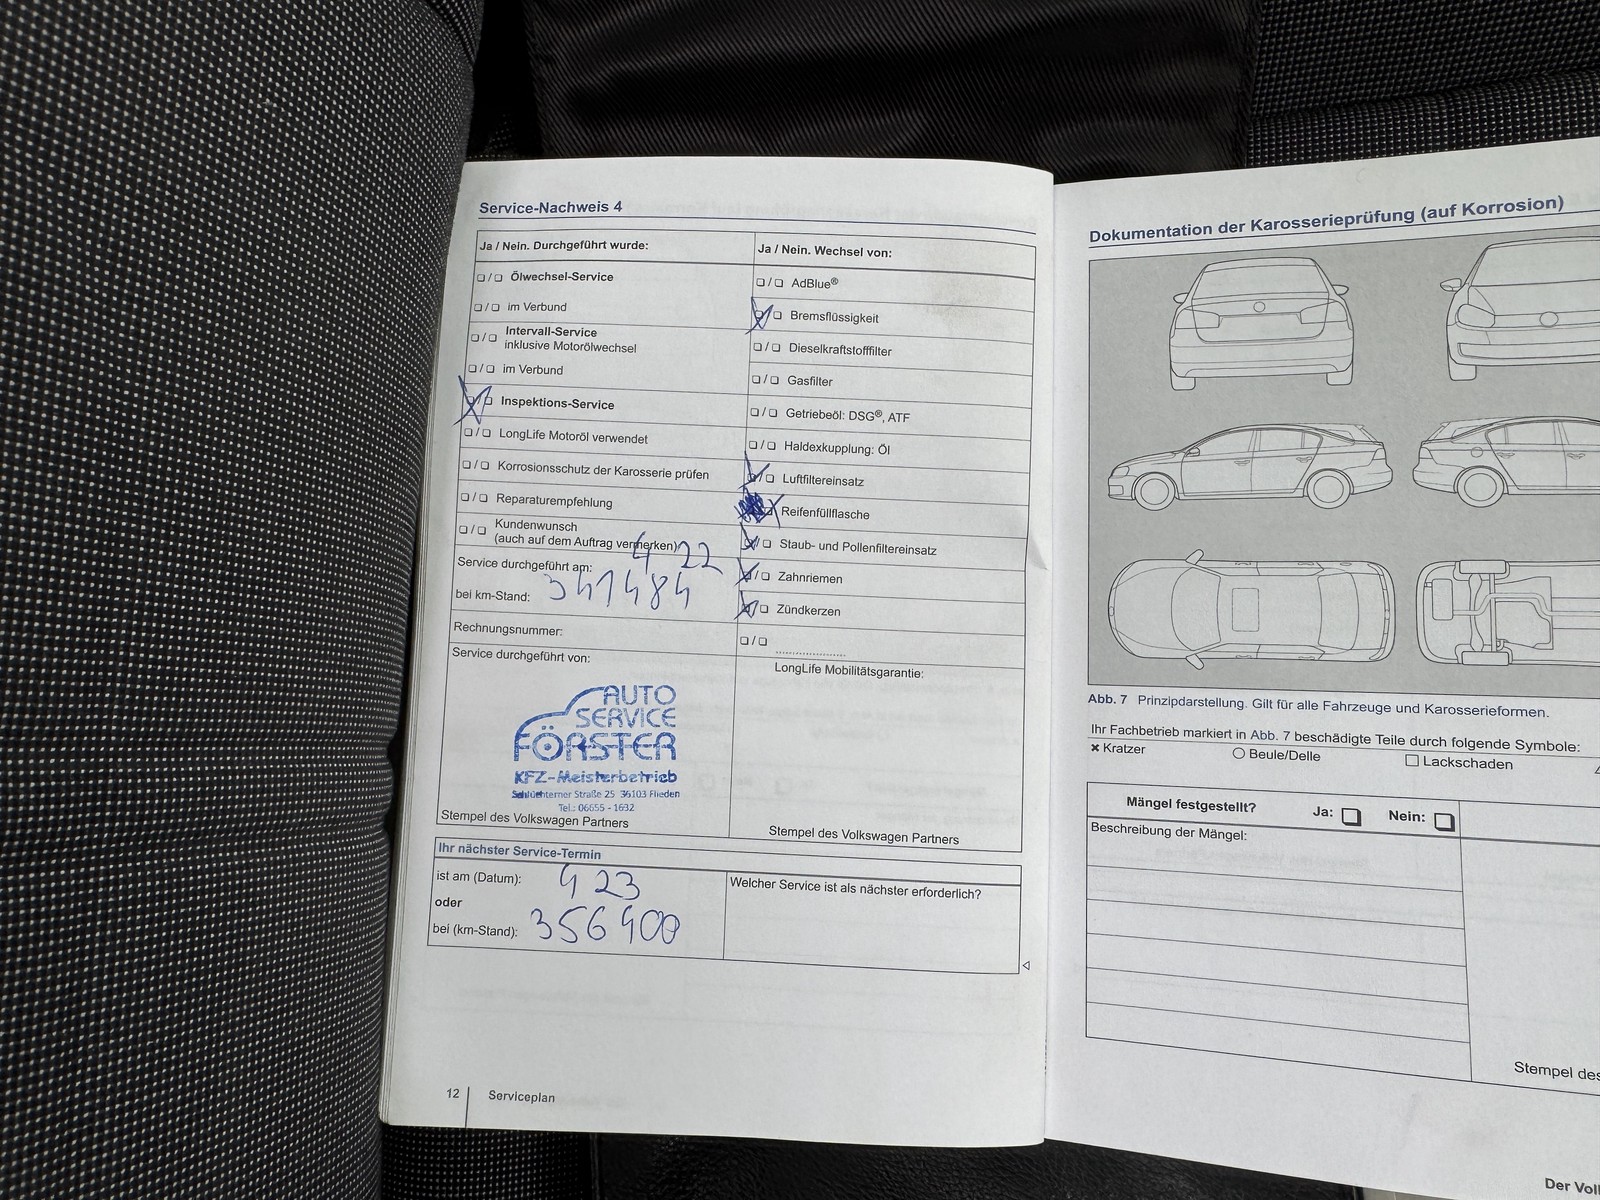 Service-Nachweis 4
Ja / Nein. Durchgeführt wurde:
❏ / ❏ Ölwechsel-Service
❏ / ❏ im Verbund
❏ / ❏ Intervall-Service
inklusive Motorölwechsel
❏ / ❏ im Verbund
❏ / ❏ Inspektions-Service
❏ / ❏ LongLife Motoröl verwendet
❏ / ❏ Korrosionsschutz der Karosserie prüfen
❏ / ❏ Reparaturempfehlung
❏ / ❏ Kundenwunsch
(auch auf dem Auftrag vermerken)
Service durchgeführt am: 4 22
bei km-Stand: 341484
Rechnungsnummer:
Service durchgeführt von:
AUTO
SERVICE
FÖRSTER
KFZ-Meisterbetrieb
Schlüchterner Straße 25 36103 Flieden
Tel.: 06655 - 1632
Stempel des Volkswagen Partners
Ja / Nein. Wechsel von:
❏ / ❏ AdBlue®
❏ / ❏ Bremsflüssigkeit
❏ / ❏ Dieselkraftstofffilter
❏ / ❏ Gasfilter
❏ / ❏ Getriebeöl: DSG®, ATF
❏ / ❏ Haldexkupplung: Öl
❏ / ❏ Luftfiltereinsatz
❏ / ❏ Reifenfüllflasche
❏ / ❏ Staub- und Pollenfiltereinsatz
❏ / ❏ Zahnriemen
❏ / ❏ Zündkerzen
❏ / ❏ ....................
LongLife Mobilitätsgarantie:
Stempel des Volkswagen Partners
Ihr nächster Service-Termin
ist am (Datum): 4 23
oder
bei (km-Stand): 356400
Welcher Service ist als nächster erforderlich?
12 Serviceplan
Dokumentation der Karosserieprüfung (auf Korrosion)
Abb. 7 Prinzipdarstellung. Gilt für alle Fahrzeuge und Karosserieformen.
Ihr Fachbetrieb markiert in Abb. 7 beschädigte Teile durch folgende Symbole:
× Kratzer ○ Beule/Delle □ Lackschaden
Mängel festgestellt? Ja: ❏ Nein: ❏
Beschreibung der Mängel:
Stempel des
Der